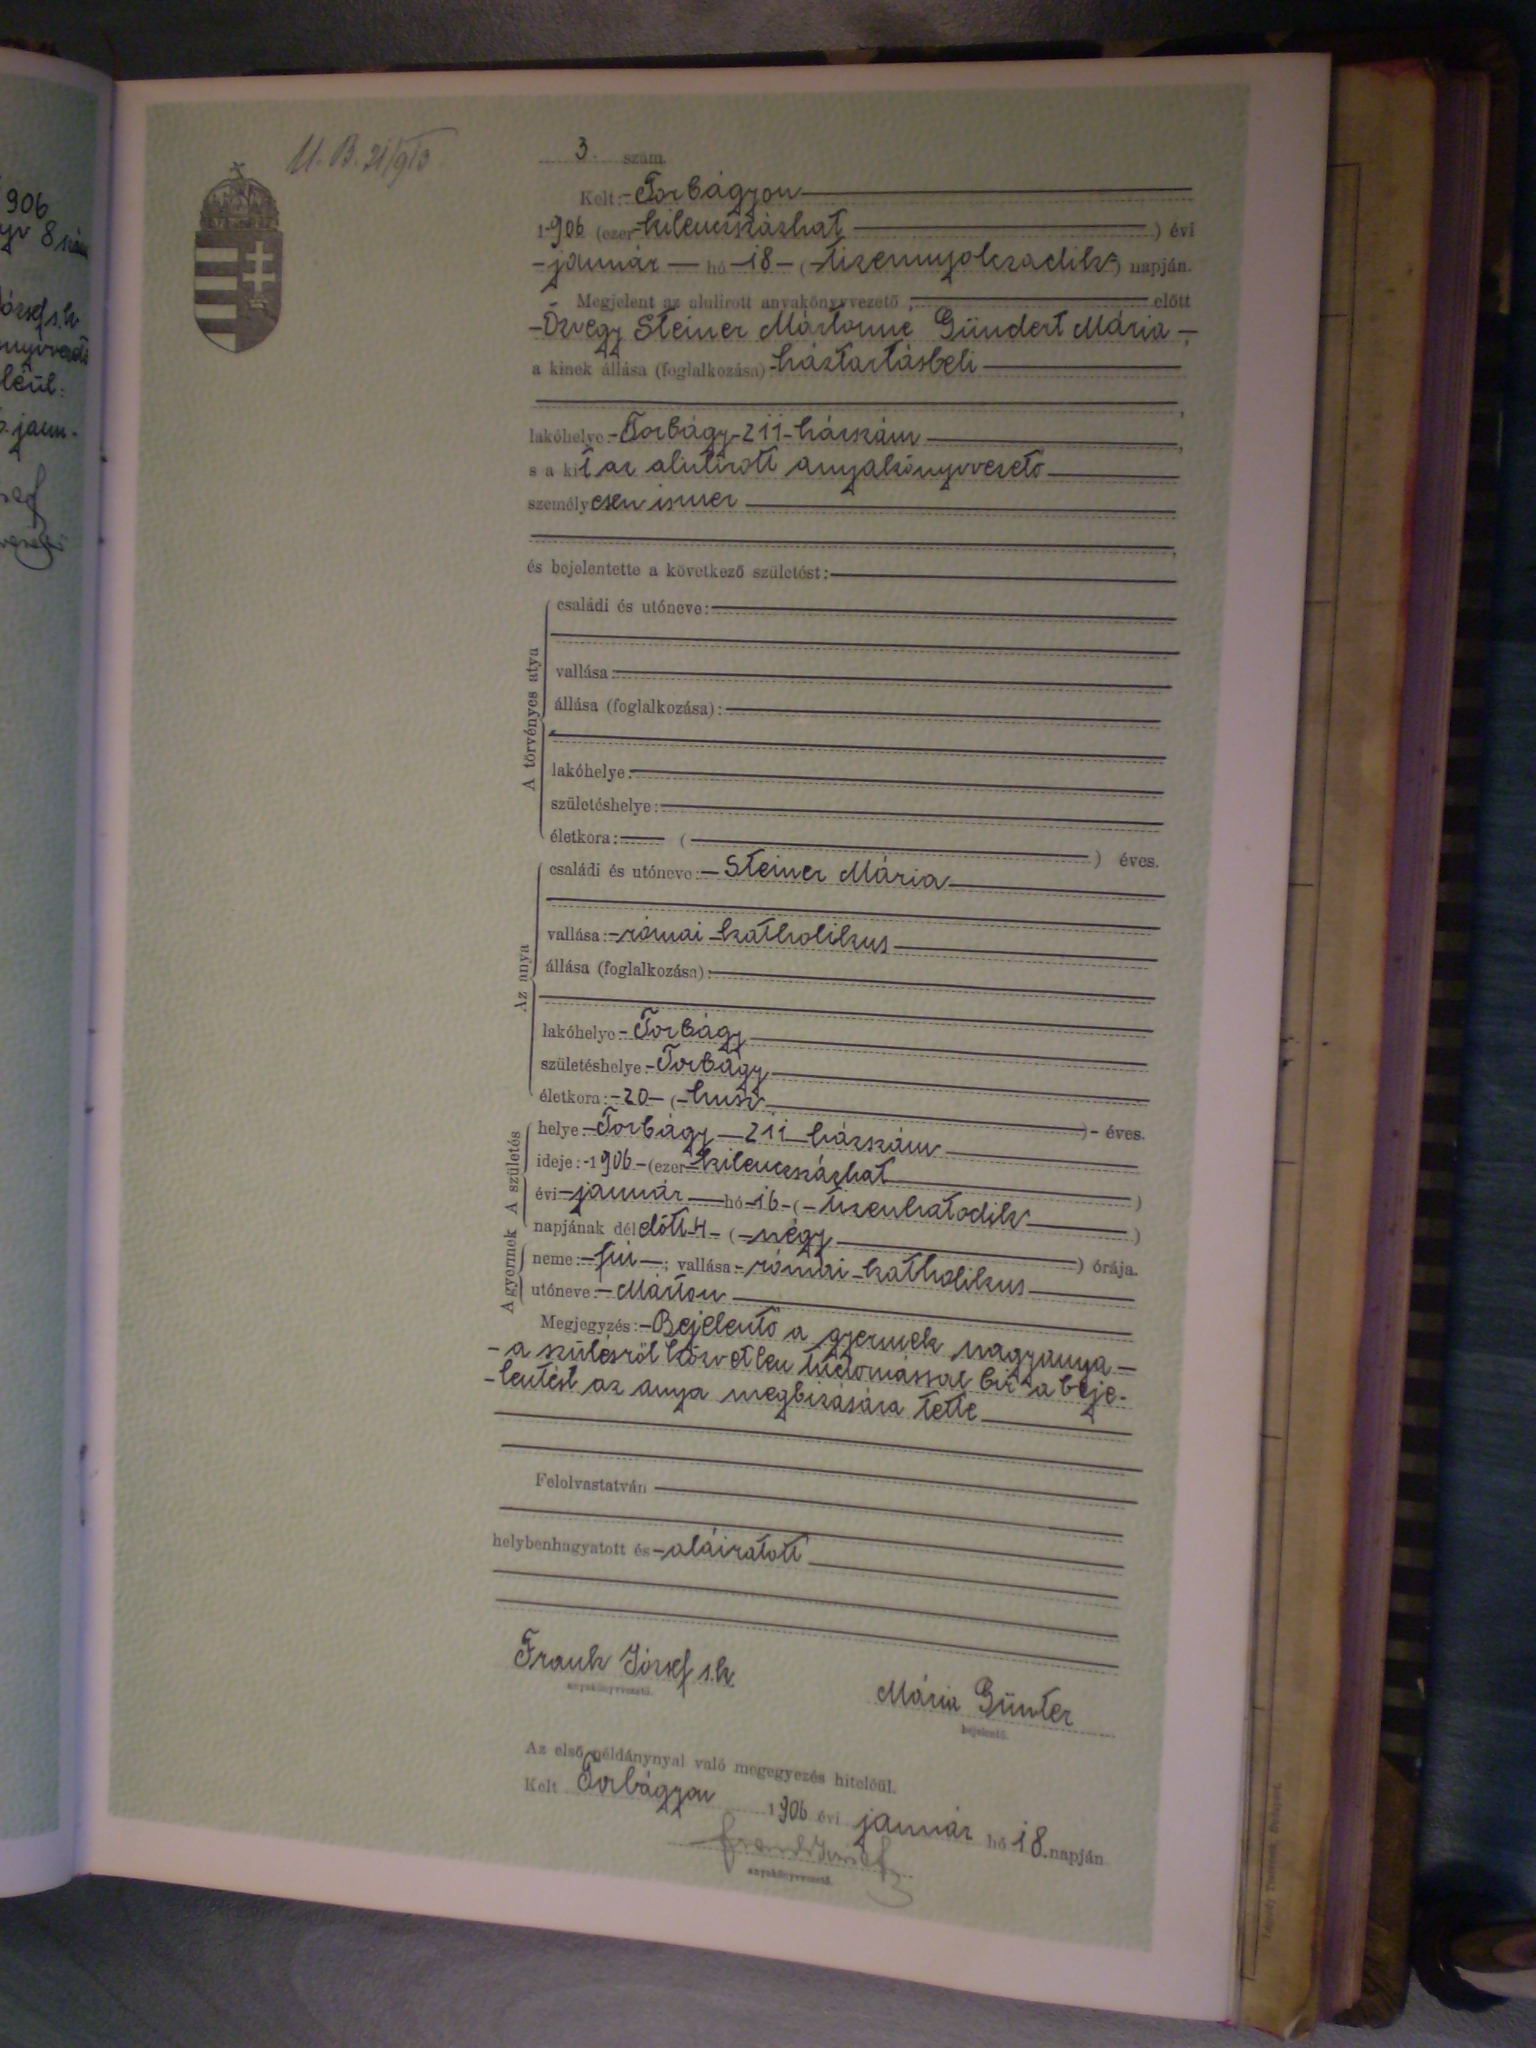 906
8 szám
József s.k
jan.
U. B. 21/913
3. szám.
Kelt: Torbágyon
1906 (ezer kilenczszázhat) évi
január hó 18 (tizennyolczadik) napján.
Megjelent az alulirott anyakönyvvezető előtt
Özvegy Steiner Mártonné Gündert Mária,
a kinek állása (foglalkozása) háztartásbeli
,
lakóhelye Torbágy 211 házszám,
s a kit az alulirott anyakönyvvezető
személyesen ismer
,
és bejelentette a következő születést:
A törvényes atya
családi és utóneve:
vallása:
állása (foglalkozása):
lakóhelye:
születéshelye:
életkora: ( ) éves.
Az anya
családi és utóneve: Steiner Mária
vallása: római katholikus
állása (foglalkozása):
lakóhelye Torbágy
születéshelye Torbágy
életkora: 20 (husz) éves.
A születés
helye Torbágy 211 házszám
ideje: 1906 (ezer kilenczszázhat)
évi január hó 16 (tizenhatodik)
napjának délelőtt 4 (négy) órája.
A gyermek
neme: fiú; vallása: római katholikus
utóneve: Márton
Megjegyzés: Bejelentő a gyermek nagyanya
a szülésről közvetlen tudomással bír a beje-
lentést az anya megbizására tette
Felolvastatván
helybenhagyatott és aláiratott
Frank József s.k
anyakönyvvezető.
Mária Günter
bejelentő.
Az első példánynyal való megegyezés hiteléül.
Kelt Torbágyon 1906 évi január hó 18. napján
Frank József
anyakönyvvezető.